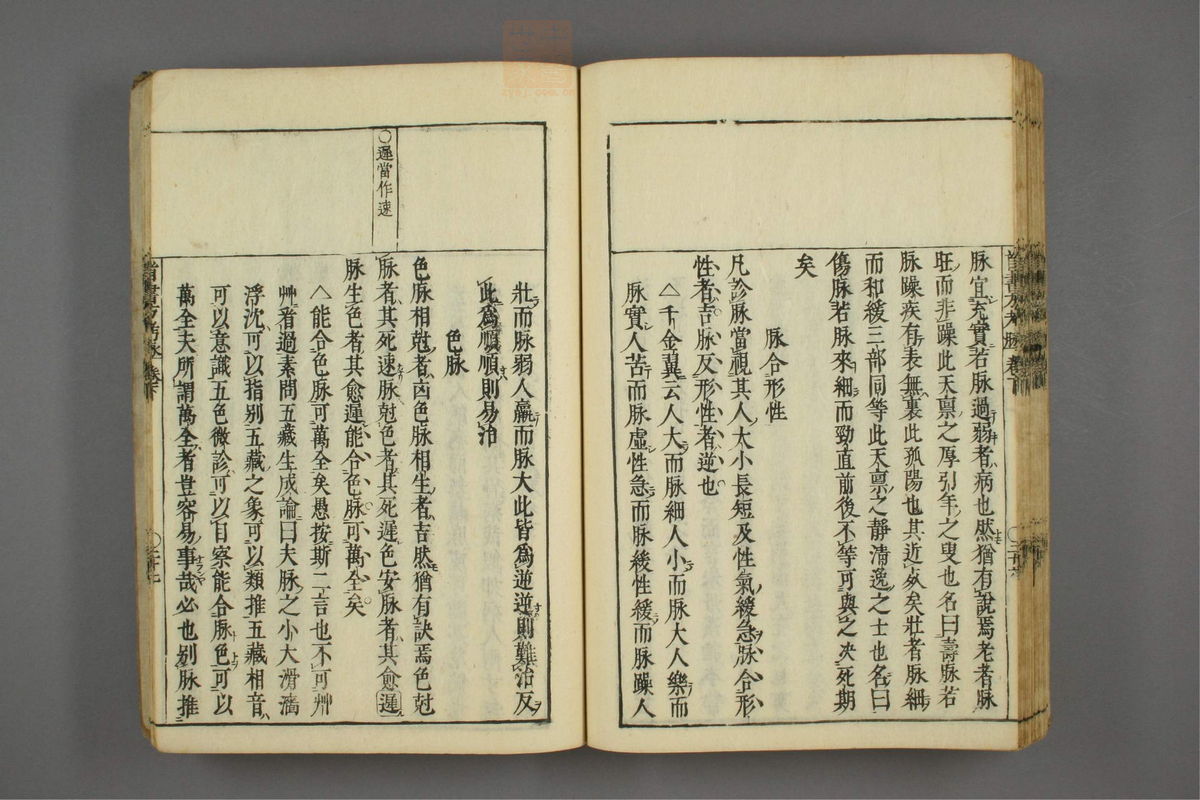 脉宜充實若脉過弱者病也然猶有說焉老者脉
旺而非躁此天禀之厚引年之叟也名曰壽脉若
脉躁疾有表無裏此孤陽也其近於死矣壯者脉細
而和緩三部同等此天禀之靜清逸之士也名曰
傷脉若脉來細而勁直前後不等可與之决死期
矣
脉合形性
凡診脉當視其人大小長短及性氣緩急脉合形
性者吉脉反形性者逆也
△千金翼云人大而脉細人小而脉大人樂而
脉實人苦而脉虛性急而脉緩性緩而脉躁人
壯而脉弱人羸而脉大此皆爲逆逆則難治反
此爲順順則易治
色脉
色脉相尅者凶色脉相生者吉然猶有訣焉色尅
脉者其死速脉尅色者其死遲色安脉者其愈遲
脉生色者其愈遲能合色脉可萬全矣
○遲當作速
△能合色脉可萬全矣愚按斯二言也不可艸
艸看過素問五藏生成論曰夫脉之小大滑濇
浮沈可以指别五藏之象可以類推五藏相音
可以意識五色微診可以目察能合脉色可以
萬全夫所謂萬全者豈容易事哉必也别脉推